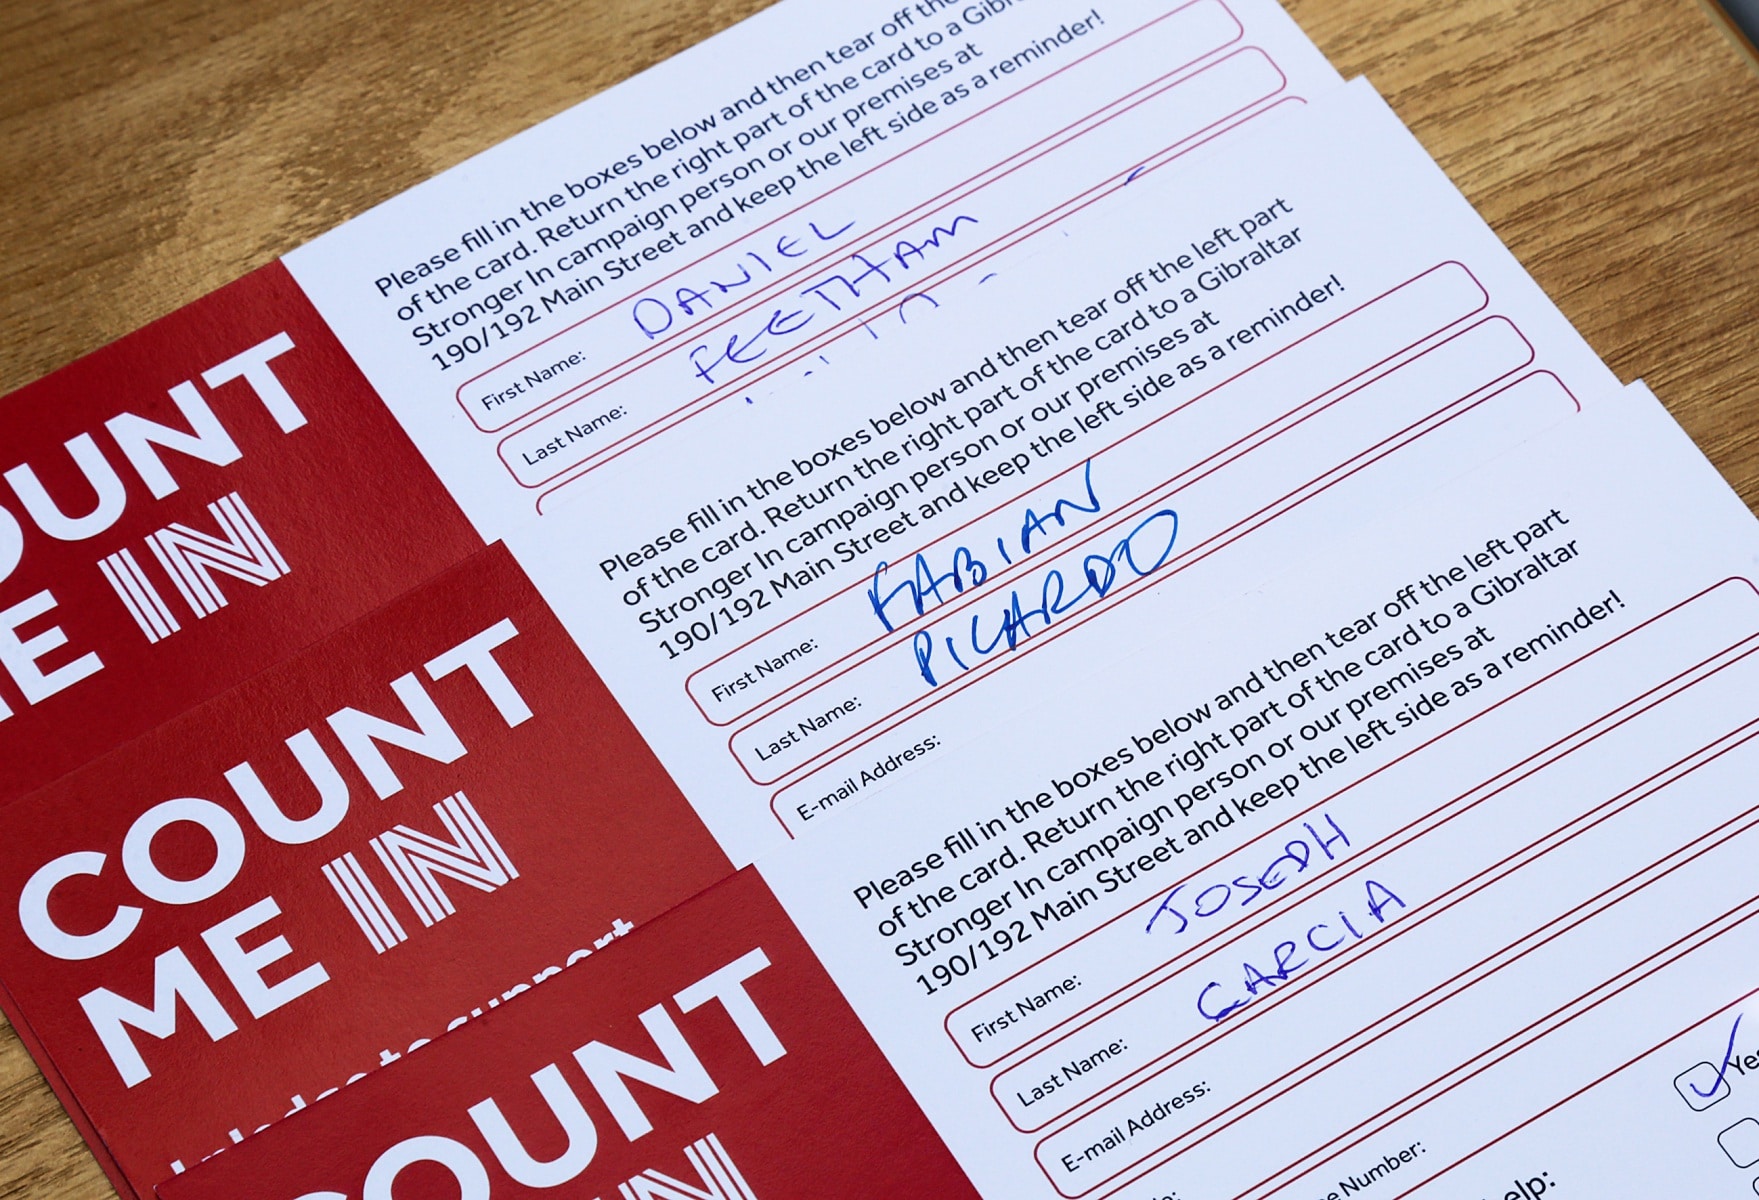 Please fill in the boxes below and then tear off the
of the card. Return the right part of the card to a
Stronger In campaign person or our premises at
190/192 Main Street and keep the left side as a reminder!
First Name: DANIEL
Last Name: FEETHAM
COUNT
ME IN
Please fill in the boxes below and then tear off the left part
of the card. Return the right part of the card to a Gibraltar
Stronger In campaign person or our premises at
190/192 Main Street and keep the left side as a reminder!
First Name: FABIAN
Last Name: PICARDO
E-mail Address:
COUNT
ME IN
to support
Please fill in the boxes below and then tear off the left part
of the card. Return the right part of the card to a Gibraltar
Stronger In campaign person or our premises at
190/192 Main Street and keep the left side as a reminder!
First Name: JOSEPH
Last Name: GARCIA
E-mail Address:
Number:
Yes
COUNT
IN